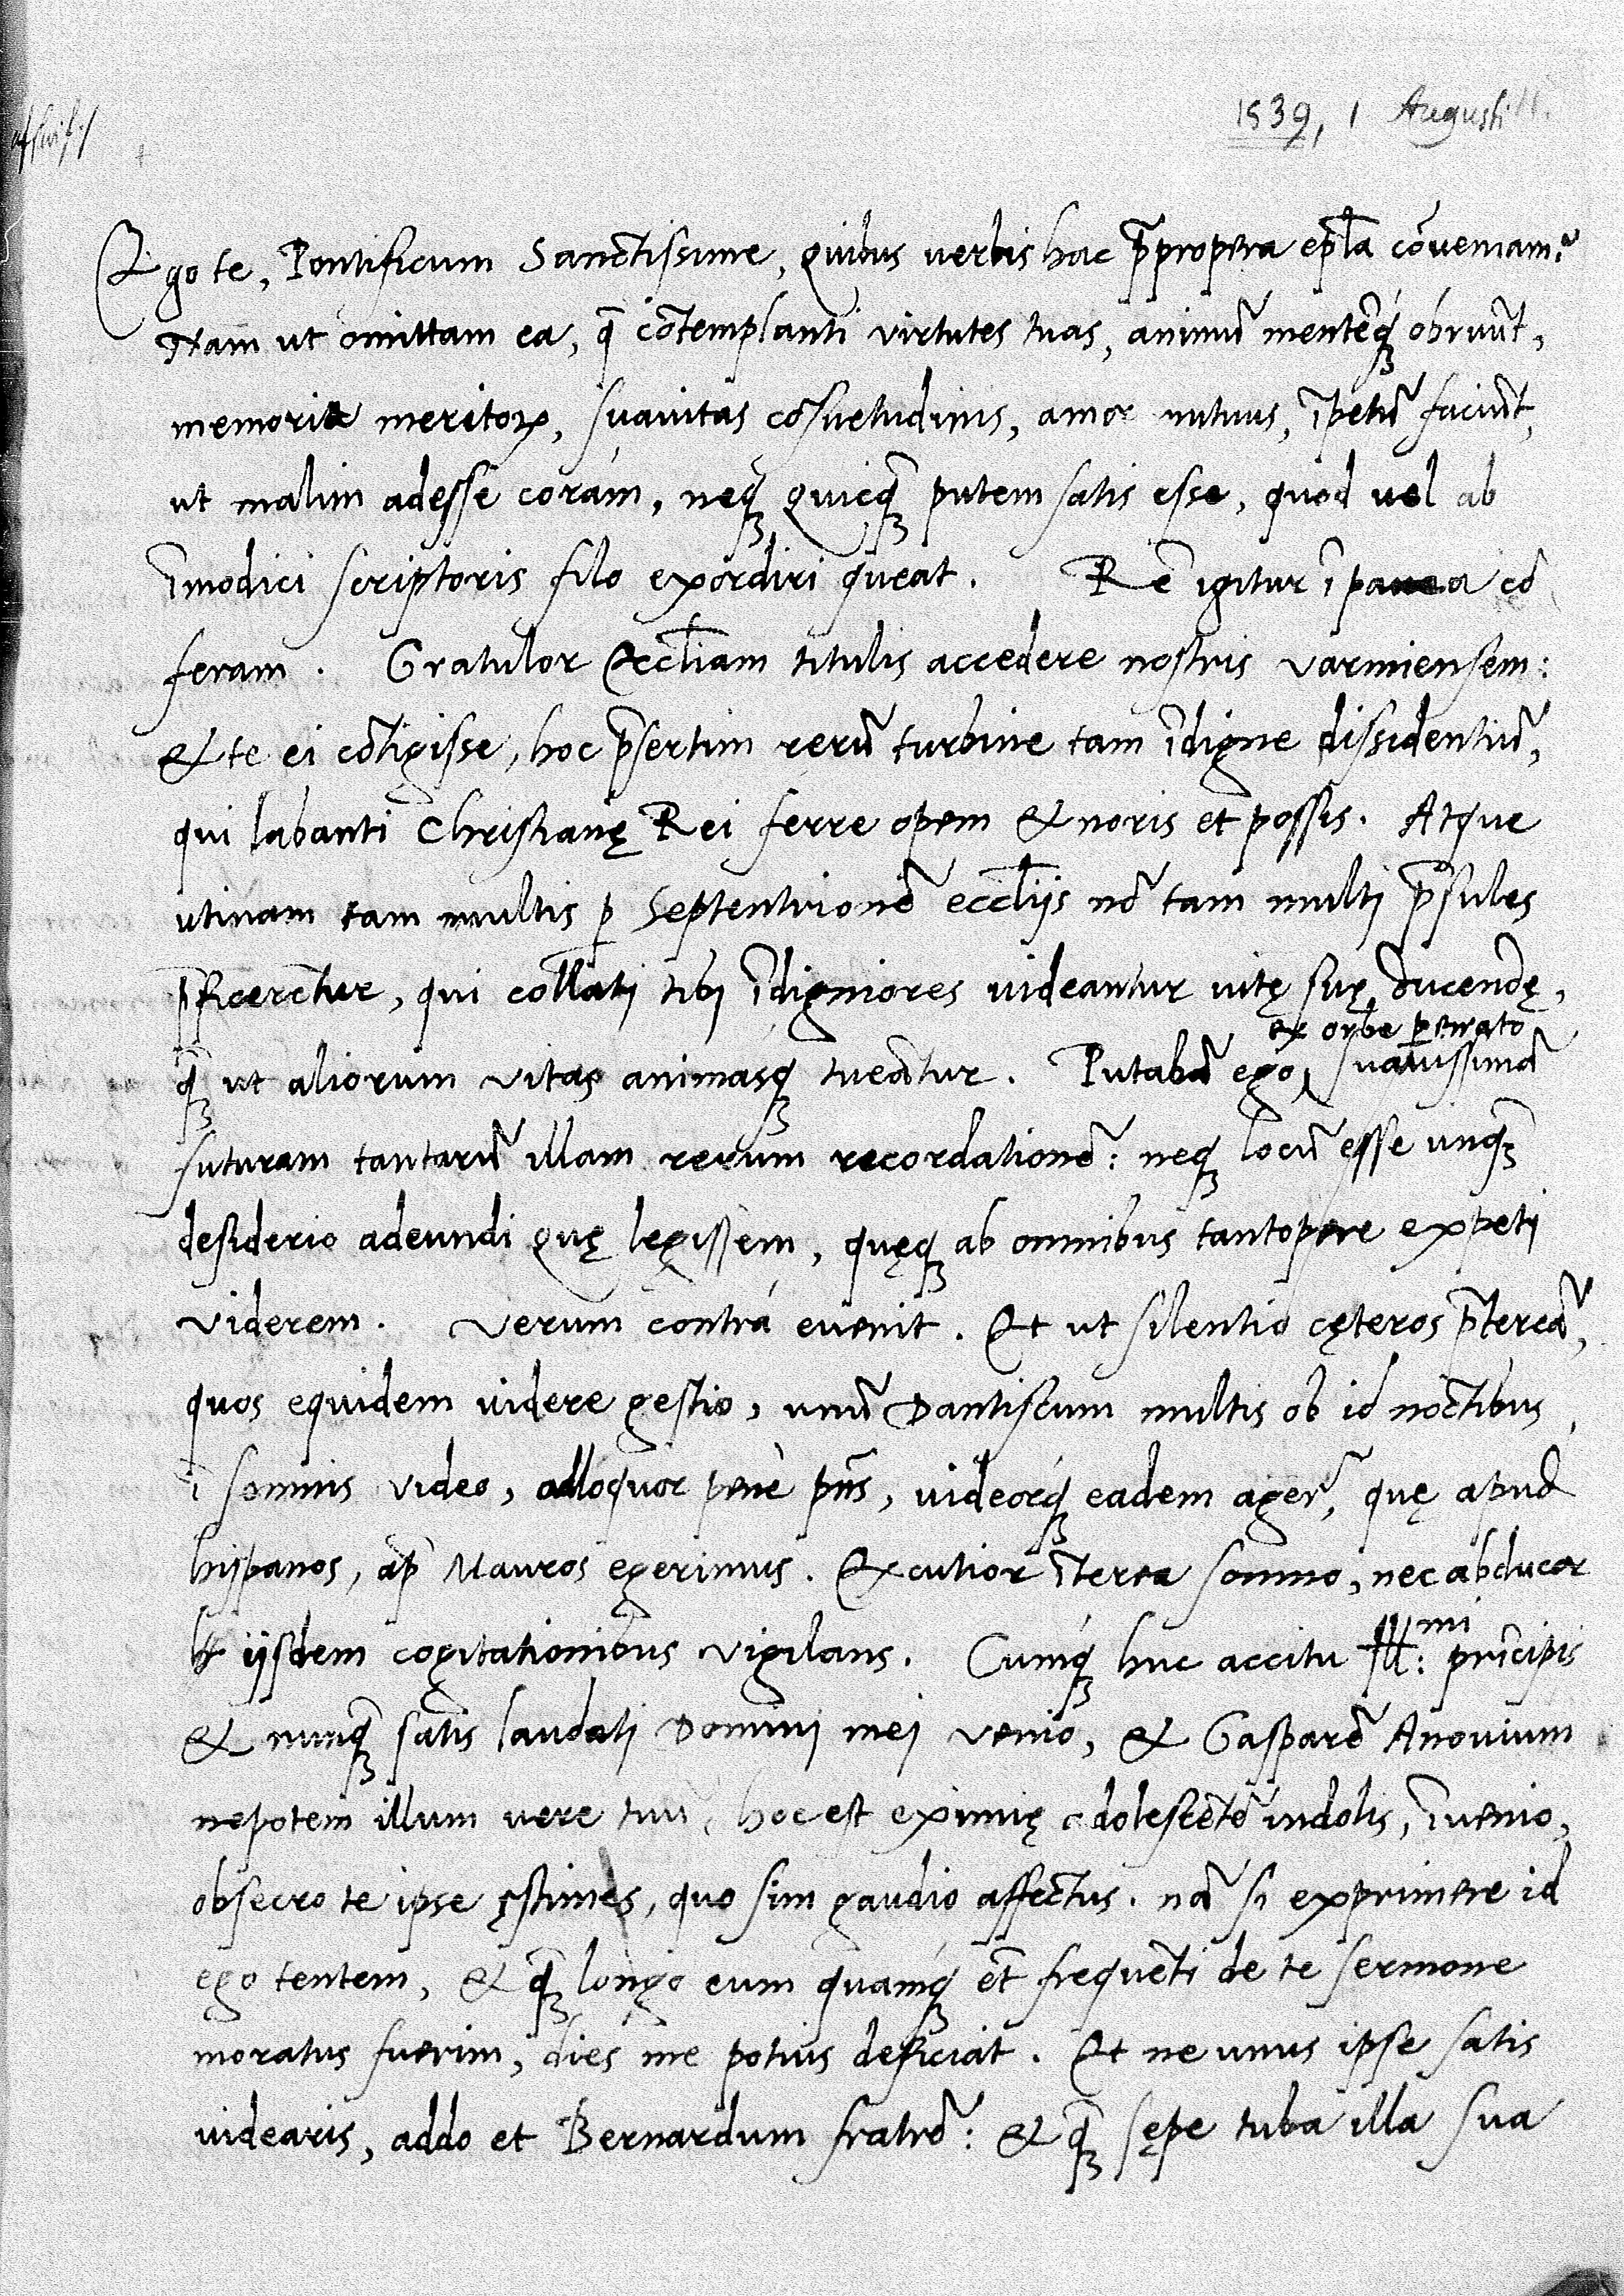 1539, 1 Augusti
Ego te, Pontificum Sanctissime, quibus verbis hac p̄propera ep̄la cōveniam?
Nam ut omittam ea, q̄ cōtemplanti virtutes tuas, animū mentēq₃ obruūt,
memoria meritoꝝ, suavitas cōsuetudinis, amor mutuus, īpetū faciūt,
ut malim adesse coràm, neq₃ quicq̄₃ putem satis esse, quod vel ab
īmodici scriptoris filo exordiri queat. Rē igitur ī pauca cō
feram. Gratulor Eccl̄iam titulis accedere nostris Varmiensem:
& te ei cōtigisse, hoc p̄sertim rerū turbine tam īdigne dissidentiū,
qui labanti Christianę Rei ferre opem & noris et possis. Atque
utinam tam multis ꝑ Septentrionē eccl̄iis nō tam multi p̄sules
p̄ficerētur, qui collati tibi īdigniores videantur vitę suę ducendę,
ex orbe ꝑerrato
q̄₃ ut aliorum vitas animasq₃ tueātur. Putabā ego, suavissimā
futuram tantarū illam rerum recordationē: neq₃ locū esse unq̄₃
desiderio adeundi quę legissem, quęq₃ ab omnibus tantopere expeti
viderem. Verum contrá evenit. Et ut silentio cęteros p̄tereā,
quos equidem videre gestio, unū Dantiscum multis ob id noctibus
ī somnis video, alloquor penè p̄ns, videorq₃ eadem agerē, quę apud
hispanos, ap̄ Mauros egerimus. Excutior īterea somno, nec abducor
iisdem cogitationibus vigilans. Cumq₃ huc accitu Ill:mi prīcipis
& nunq̄₃ satis laudati Domini mei venio, & Gasparē Anovium
nepotem illum vere tuū, hoc est eximię adolescētē indolis, īvenio,
obsecro te ipse ęstimes, quo sim gaudio affectus. nā si exprimere id
ego tentem, & q̄₃ longo eum quamq₃ ēt frequēti de te sermone
moratus fuerim, dies me potius deficiat. Et ne unus ipse satis
videaris, addo et Bernardum fratrē: & q̄₃ sępe tuba illa sua